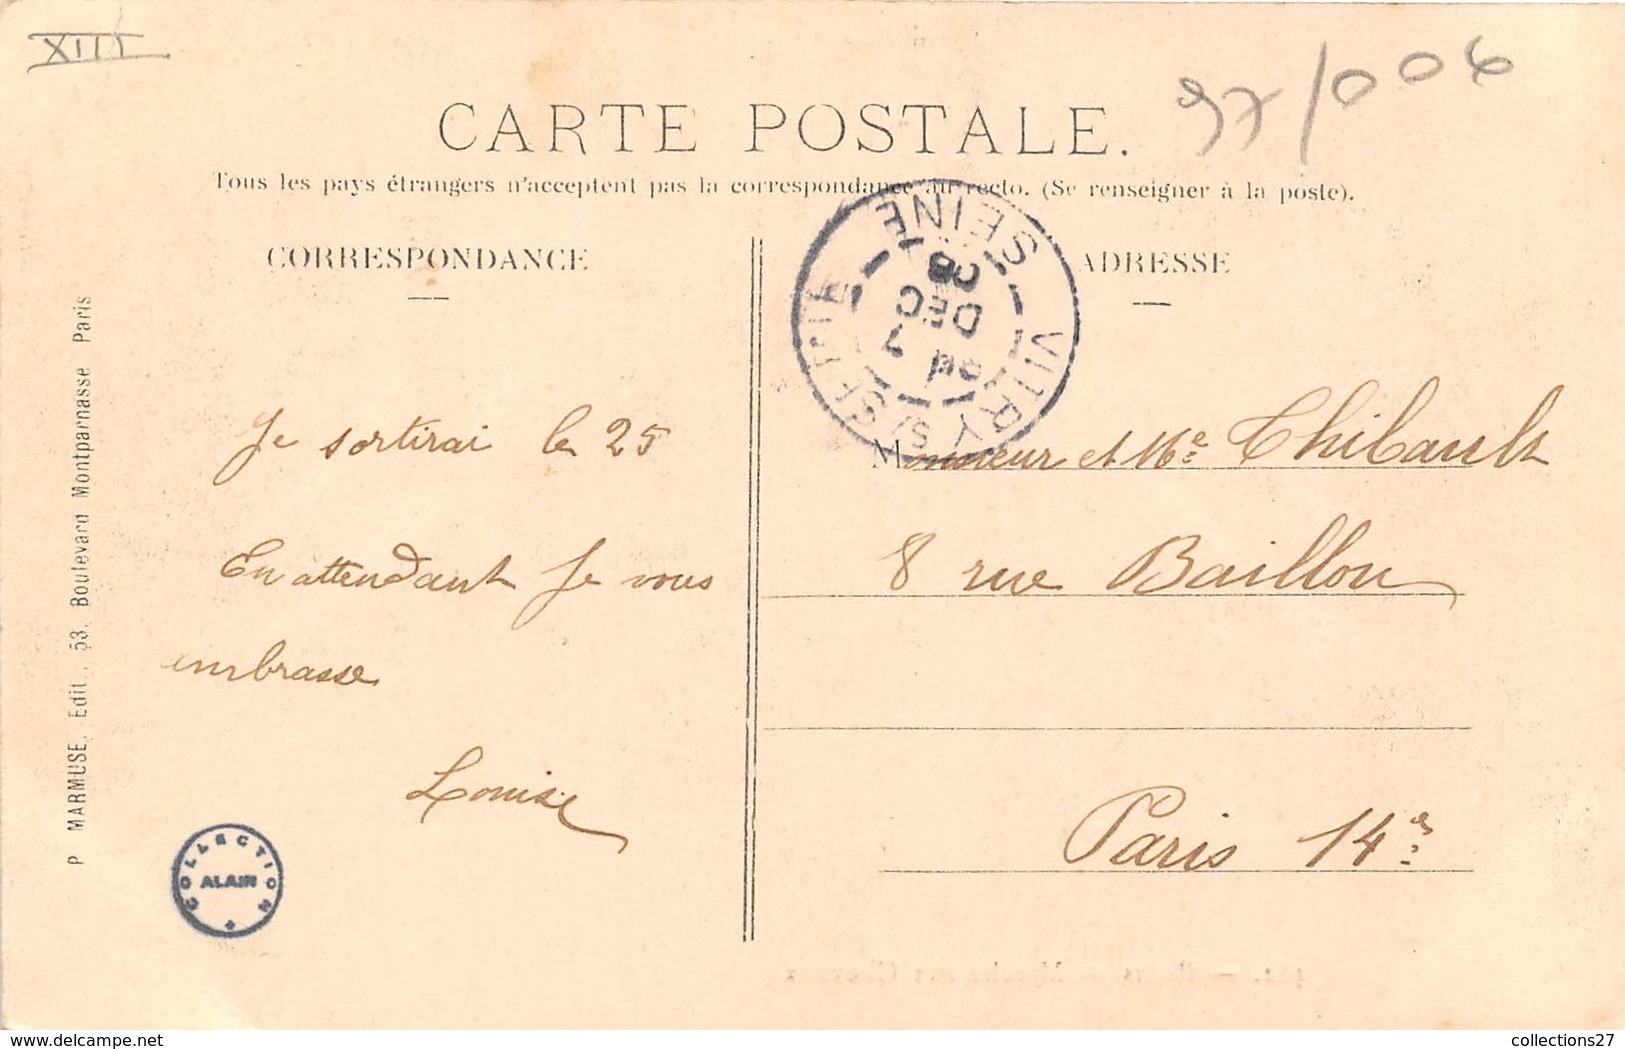 XIII
97/006
CARTE POSTALE.
Tous les pays étrangers n'acceptent pas la correspondance au recto. (Se renseigner à la poste).
CORRESPONDANCE
ADRESSE
VITRY S/ SEINE
SEINE
7
DEC
08
Je sortirai le 25
En attendant Je vous
embrasse
Louise
Monsieur et Me Thibault
8 rue Baillou
Paris 14e
P MARMUSE, Edit., 53. Boulevard Montparnasse Paris
COLLECTION
ALAIN
collections27